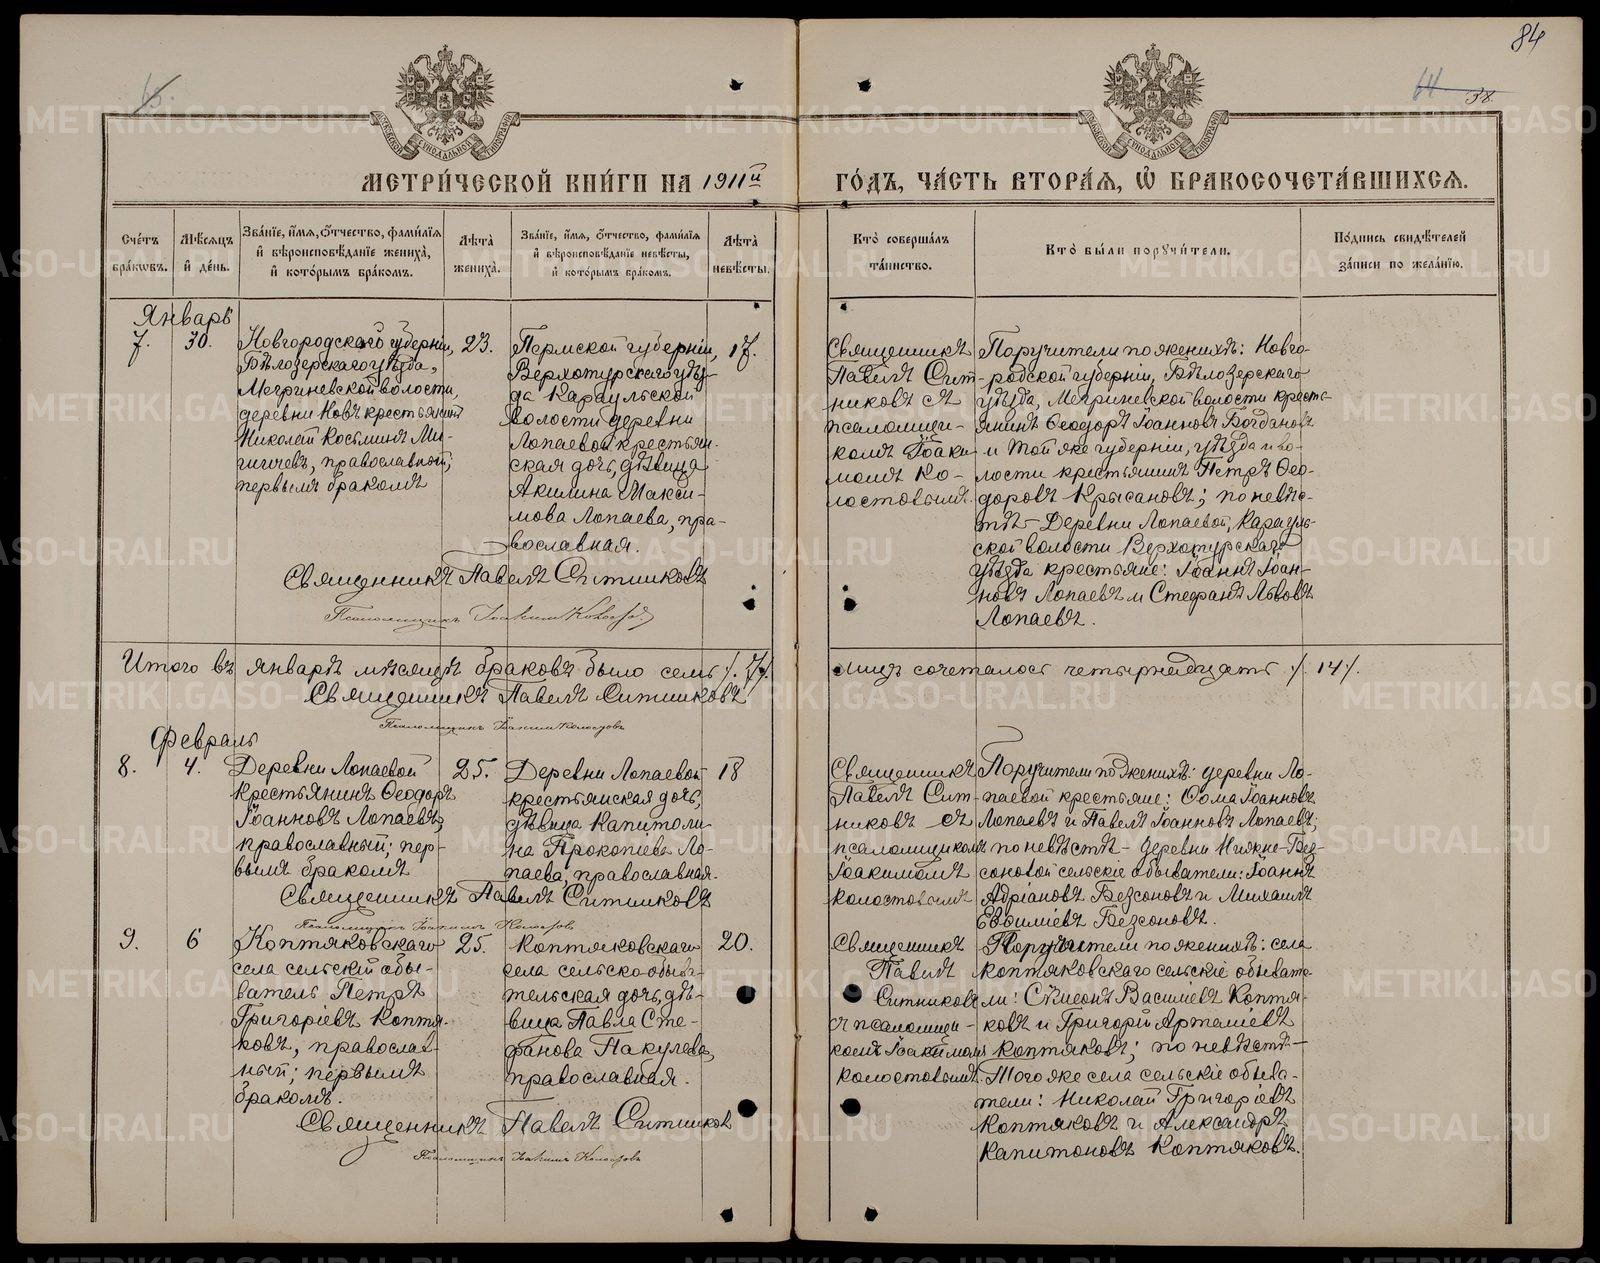 84
65.
64
38.
МЕТРИ́ЧЕСКОЙ КНИ́ГИ НА 1911й
ГО́ДЪ, ЧА́СТЬ ВТОРА́Я, Ѡ БРАКОСОЧЕТА́ВШИХСЯ.
Сче́тъ бра́кѡвъ.
Мѣ́сяцъ и де́нь.
Зва́нїе, и́мя, ѻ́тчество, фами́лїя и вѣроисповѣ́данїе жениха̀, и кото́рымъ бра́комъ.
Лѣ́та жениха̀.
Зва́нїе, и́мя, ѻ́тчество, фами́лїя и вѣроисповѣ́данїе невѣ́сты, и кото́рымъ бра́комъ.
Лѣ́та невѣ́сты.
Кто̀ соверша́лъ та́инство.
Кто̀ бы́ли поручи́тели.
По́дпись свидѣ́телей за́писи по жела́нїю.
Январь
7.
30.
Новгородскаго губерніи,
Бѣлозерскаго уѣзда,
Мегриневской волости,
деревни Новъ крестьянинъ
Николай Косьминъ Ми-
гичевъ, православный;
первымъ бракомъ
23.
Пермской губерніи,
Верхотурскаго уѣз-
да Караульской
волости деревни
Лопаевой крестьян-
ская дочь, дѣвица
Акилина Макси-
мова Лопаева, пра-
вославная.
17.
Священникъ
Павелъ Сит-
никовъ съ
псаломщи-
комъ Іоаки-
момъ Ко-
лостовымъ
Поручители по женихѣ: Новго-
родской губерніи, Бѣлозерскаго
уѣзда, Мегриневской волости кресть-
янинъ Ѳеодоръ Іоанновъ Богдановъ
и той же губерніи, уѣзда и во-
лости крестьянинъ Петръ Ѳео-
доровъ Крысановъ; по невѣс-
тѣ – Деревни Лопаевой, Карауль-
ской волости Верхотурскаго
уѣзда крестьяне: Іоаннъ Іоан-
новъ Лопаевъ и Стефанъ Львовъ
Лопаевъ.
Священникъ Павелъ Ситниковъ
Псаломщикъ Іоакимъ Колостов
Итого въ январѣ мѣсяцѣ браковъ было семь /. 7/.
лицъ сочеталось четырнадцать /. 14/.
Священникъ Павелъ Ситниковъ
Псаломщикъ Іоакимъ Колостовъ
Февраль
8.
4.
Деревни Лопаевой
крестьянинъ Ѳеодоръ
Іоанновъ Лопаевъ,
православный; пер-
вымъ бракомъ
25.
Деревни Лопаевой
крестьянская дочь,
дѣвица Капитоли-
на Прокопіева Ло-
паева, православная.
18
Священникъ
Павелъ Сит-
никовъ съ
псаломщикомъ
Іоакимомъ
Колостовымъ
Поручители по женихѣ: деревни Ло-
паевой крестьяне: Ѳома Іоанновъ
Лопаевъ и Павелъ Іоанновъ Лопаевъ;
по невѣстѣ – деревни Нижне-Без-
соновой сельскіе обыватели: Іоаннъ
Адріановъ Безсоновъ и Михаилъ
Евѳиміевъ Безсоновъ.
Священникъ Павелъ Ситниковъ
Псаломщикъ Іоакимъ Колостов
9.
6
Коптяковскаго
села сельскій обы-
ватель Петръ
Григоріевъ Коптя-
ковъ, православ-
ный; первымъ
бракомъ.
25.
Коптяковскаго
села сельско-обыва-
тельская дочь, дѣ-
вица Павла Сте-
фанова Пакулева,
православная.
20.
Священникъ
Павелъ
Ситниковъ
съ псаломщи-
комъ Іоакимомъ
Колостовымъ.
Поручители по женихѣ: села
Коптяковскаго сельскіе обывате-
ли: Сѵмеонъ Василіевъ Коптя-
ковъ и Григорій Артеміевъ
Коптяковъ; по невѣстѣ –
Того же села сельскіе обыва-
тели: Николай Григоріевъ
Коптяковъ и Александръ
Капитоновъ Коптяковъ.
Священникъ Павелъ Ситников
Псаломщикъ Іоакимъ Колостовъ
METRIKI.GASO-URAL.RU